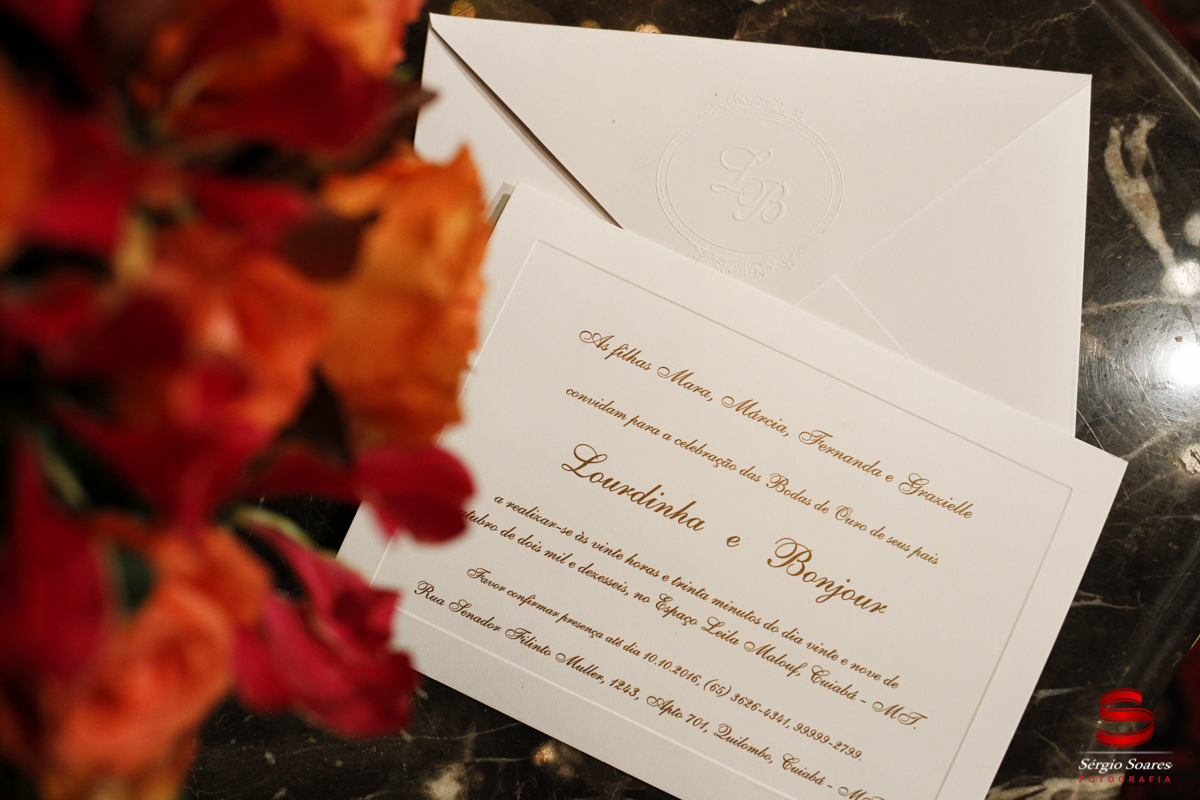 LB
As filhas Mara, Márcia, Fernanda e Grazielle
convidam para a celebração das Bodas de Ouro de seus pais
Lourdinha e Bonjour
a realizar-se às vinte horas e trinta minutos do dia vinte e nove de
outubro de dois mil e dezesseis, no Espaço Leila Malouf, Cuiabá - MT.
Favor confirmar presença até dia 10.10.2016, (65) 3626-4341, 99939-2799.
Rua Senador Filinto Muller, 1243, Apto 701, Quilombo, Cuiabá - MT
Sérgio Soares
FOTOGRAFIA